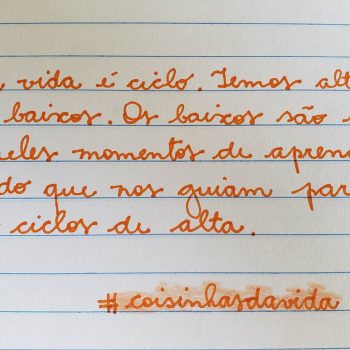 vida é ciclo. Temos alt
baixos. Os baixos são
momentos de apren
do que nos guiam par
ciclos de alta.
#coisinhasdavida